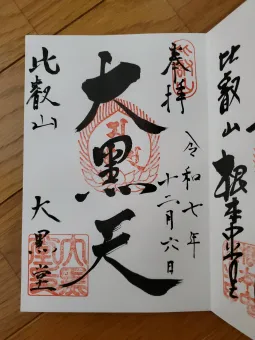 奉拝
令和七年
十二月六日
大黒天
比叡山
大黒堂
比叡山
根本中堂